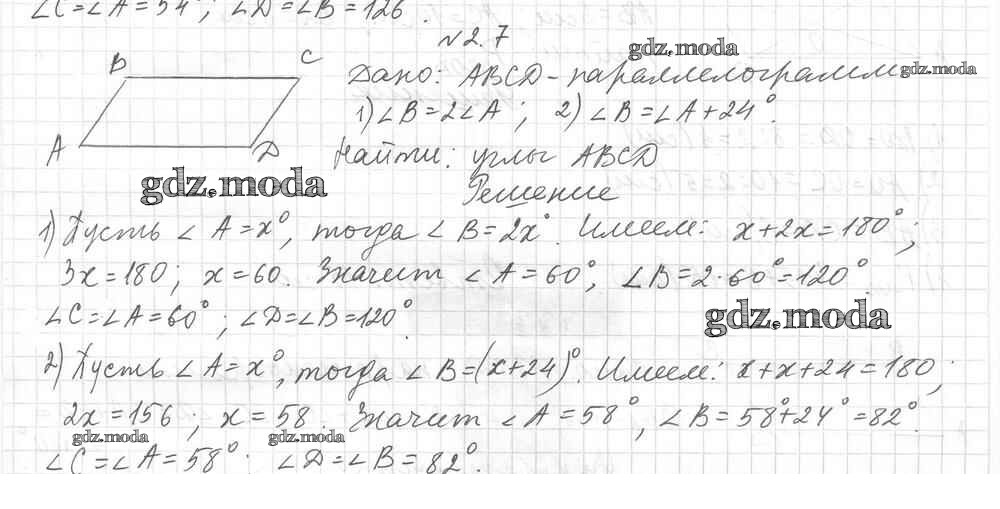 ∠C=∠A=54°; ∠D=∠B=126°.
№2.7
gdz.moda
B
C
Дано: ABCD-параллелограмм
gdz.moda
1) ∠B=2∠A; 2) ∠B=∠A+24°.
A
D
Найти: углы ABCD
gdz.moda
Решение
1) Пусть ∠A=x°, тогда ∠B=2x°. Имеем: x+2x=180°;
3x=180; x=60. Значит ∠A=60°, ∠B=2·60°=120°.
∠C=∠A=60°; ∠D=∠B=120°.
gdz.moda
2) Пусть ∠A=x°, тогда ∠B=(x+24)°. Имеем: x+x+24=180;
2x=156; x=58. Значит ∠A=58°, ∠B=58°+24°=82°.
gdz.moda gdz.moda
∠C=∠A=58°. ∠D=∠B=82°.